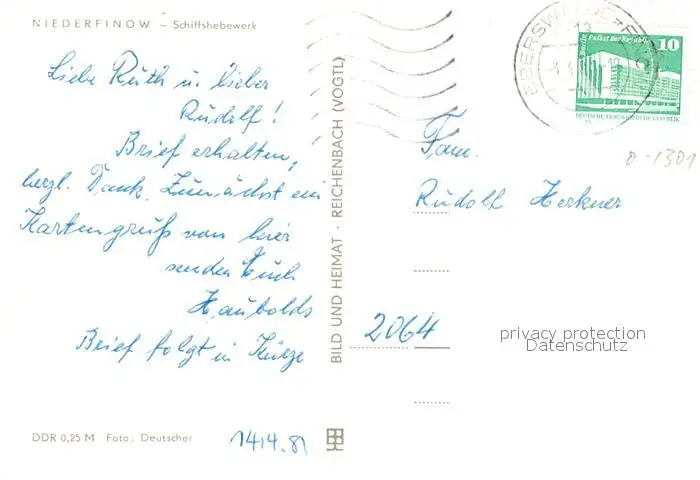 NIEDERFINOW – Schiffshebewerk
Liebe Ruth u. lieber
Rudolf!
Brief erhalten,
herzl. Dank. Zunächst ein
Kartengruß von hier
senden Euch
Haubolds
Brief folgt in Kürze
DDR 0,25 M Foto: Deutscher
14.4.81
BILD UND HEIMAT · REICHENBACH (VOGTL)
EBERSWALDE-F
13
Berlin Palast der Republik
10
DEUTSCHE DEMOKRATISCHE REPUBLIK
0-1301
Fam.
Rudolf Herkner
2064
privacy protection
Datenschutz